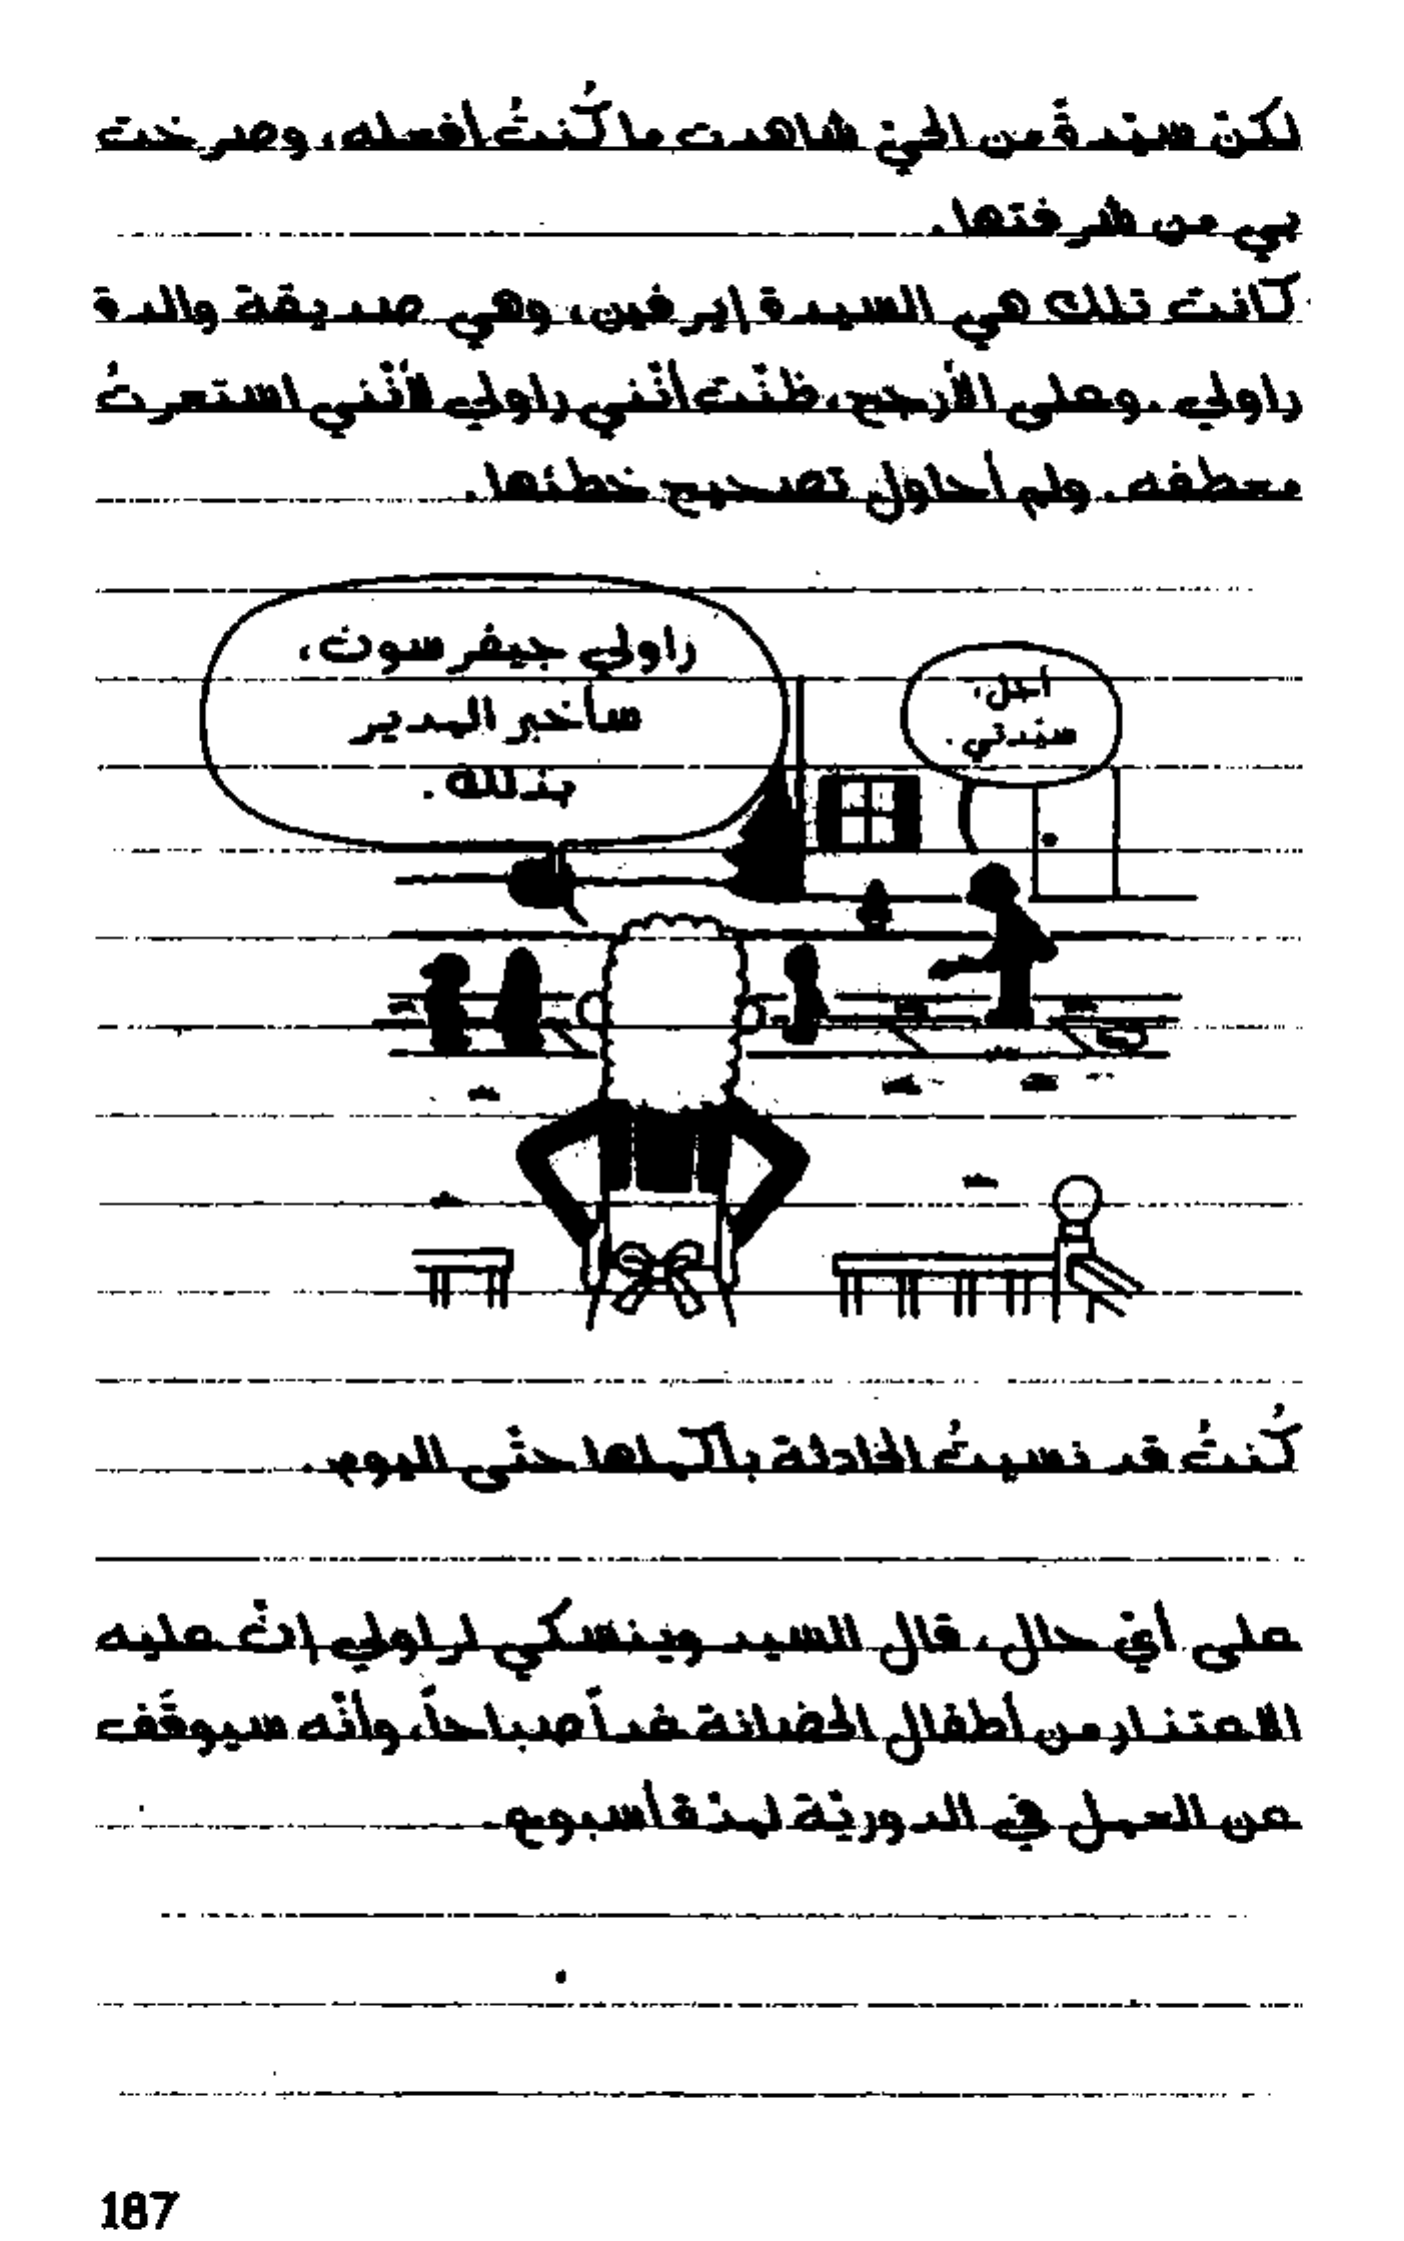 لكنّ سيّدةً من الحيّ شاهدت ما كُنتُ أفعله، وصرخت
بي من شرفتها.
كانت تلك هي السيدة إيرفين، وهي صديقة والدة
راولي. وعلى الأرجح، ظنّت أنّني راولي لأنّني استعرتُ
معطفه. ولم أحاول تصحيح خطئها.
راولي جيفرسون،
سأخبر المدير
بذلك.
أجل،
سيّدتي.
كُنتُ قد نسيتُ الحادثة بأكملها حتّى اليوم.
على أيّ حال، قال السيد وينسكي لراولي إنّ عليه
الاعتذار من أطفال الحضانة غداً صباحاً، وأنّه سيوقَف
عن العمل في الدوريّة لمدّة أسبوع.
187